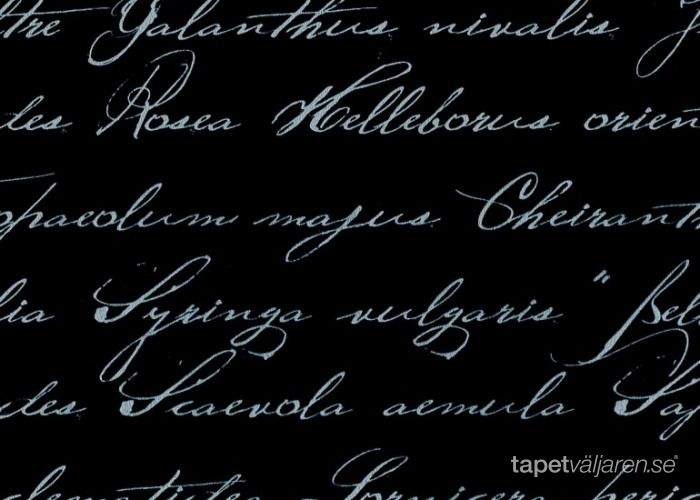 tre Galanthus nivalis
des Rosea Helleborus orien
opaeolum majus Cheiranth
lia Syringa vulgaris " Bel
des Scaevola aemula Sap
lematidea Lonicera peric
tapetväljaren.se